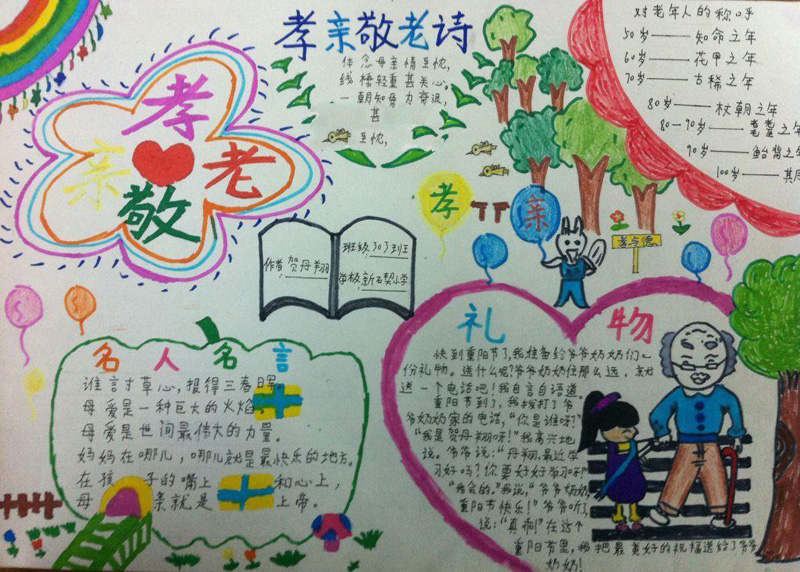 孝亲敬老诗
体念母亲情互忱,
线棰轻重甚关心。
一朝知骨力衰退,
甚
互忱,
对老年人的称呼
50岁——知命之年
60岁——花甲之年
70岁——古稀之年
80岁——杖朝之年
80-90岁——耄耋之年
90岁——鲐背之年
100岁——其
孝
亲 老
敬
孝
亲
孝与德
作者 贺毋翔
班级 303班
学校 新石小学
名人名言
谁言寸草心,报得三春晖。
母爱是一种巨大的火焰。
母爱是世间最伟大的力量。
妈妈在哪儿,哪儿就是最快乐的地方。
在孩 子的嘴上 和心上,
母 亲就是 上帝。
礼物
快到重阳节了,我准备给爷爷奶奶们一
份礼物。送什么呢?爷爷奶奶住那么远,
送一个电话吧!我自言自语道。
重阳节到了,我拨打了爷
爷奶奶家的电话,“你是谁呀?”
“我是贺毋翔呀!”我高兴地
说。爷爷说:“毋翔,最近学
习好吗?你更好好学习呀!”
“我会的。”我说,“爷爷奶奶
重阳节快乐!”爷爷听了,
说:“真乖!”在这个
重阳节里,我把最美好的祝福送给了爷爷
奶奶!